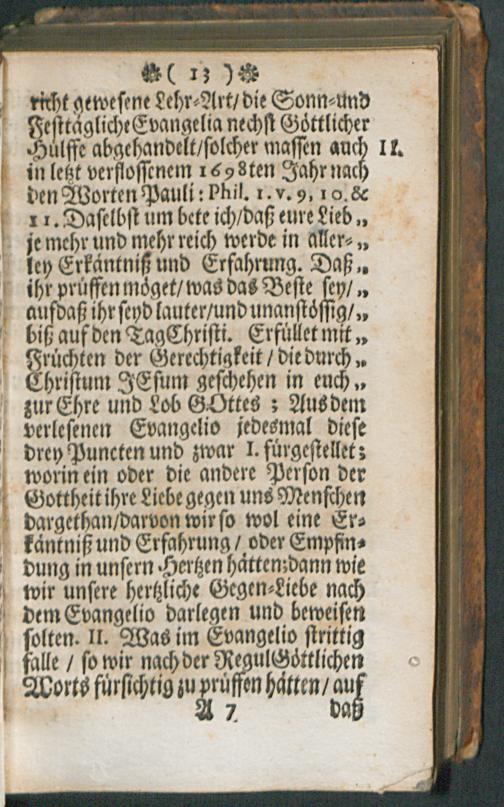 ❋( 13 )❋
richt gewesene Lehr-Art/ die Sonn-und
Festtägliche Evangelia nechst Göttlicher
Hülffe abgehandelt/ solcher massen auch II.
in letzt verflossenem 1698ten Jahr nach
den Worten Pauli: Phil. 1. v. 9, 10. &
11. Daselbst um bete ich/ daß eure Lieb „
je mehr und mehr reich werde in aller- „
ley Erkäntniß und Erfahrung. Daß „
ihr prüffen möget/ was das Beste sey/ „
auf daß ihr seyd lauter/ und unanstössig/ „
biß auf den Tag Christi. Erfüllet mit „
Früchten der Gerechtigkeit / die durch „
Christum JEsum geschehen in euch „
zur Ehre und Lob GOttes ; Aus dem
verlesenen Evangelio jedesmal diese
drey Puncten und zwar I. fürgestellet;
worin ein oder die andere Person der
Gottheit ihre Liebe gegen uns Menschen
dargethan/ darvon wir so wol eine Er-
käntniß und Erfahrung / oder Empfin-
dung in unsern Hertzen hätten; dann wie
wir unsere hertzliche Gegen-Liebe nach
dem Evangelio darlegen und beweisen
solten. II. Was im Evangelio strittig
falle / so wir nach der Regul Göttlichen
Worts fürsichtig zu prüffen hätten/ auf
A 7 daß